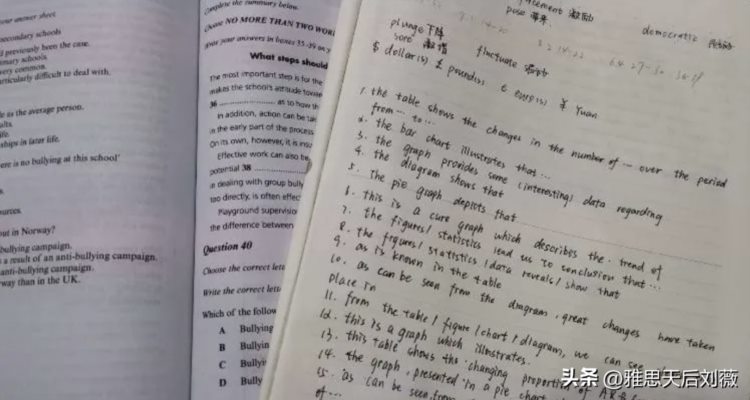 your answer sheet
secondary schools
previously been the case.
mary schools
very common.
particularly difficult to deal with.
as the average person.
ults.
life.
ships in later life.
ere is no bullying at this school'
in Norway?
bullying campaign.
a result of an anti-bullying campaign.
anti-bullying campaign.
way than in the UK.
Complete the summary below.
Choose NO MORE THAN TWO WOR
your answers in boxes 35-39 on y
What steps should
The most important step is for the
makes the school's attitude towar
36 .................... as to how th
In addition, action can be tak
in the early part of the process
On its own, however, it is ins
Effective work can also be
potential 38 ....................
in dealing with group bully
too directly, is often effec
Playground supervisio
the difference between
Question 40
Choose the correct lett
Write the correct lett
Which of the follow
A Bullying
B Bullyin
C Bullyi
D Bully
激励
pose 带来
democratic
plunge 下降
soar 激增
fluctuate 波动
$ dollar(s) £ pound(s) € euro(s) ¥ Yuan
1. the table shows the changes in the number of ... over the period
from ... to ...
2. the bar chart illustrates that ...
3. the graph provides some (interesting) data regarding
4. the diagram shows that
5. The pie graph depicts that
6. this is a cure graph which describes the trend of
7. the figures / statistics lead us to conclusion that ...
8. the figures / statistics / data reveals / show that
9. as is known in the table
10. as can be seen from the diagram, great changes have taken
place in
11. from the table / figure / chart / diagram, we can see
12. this is a graph which illustrates.
13. this table shows the changing proportion of A & B
14. the graph, presented in a pie chart
15. as can be seen from
of ...
头条 @雅思天后刘薇